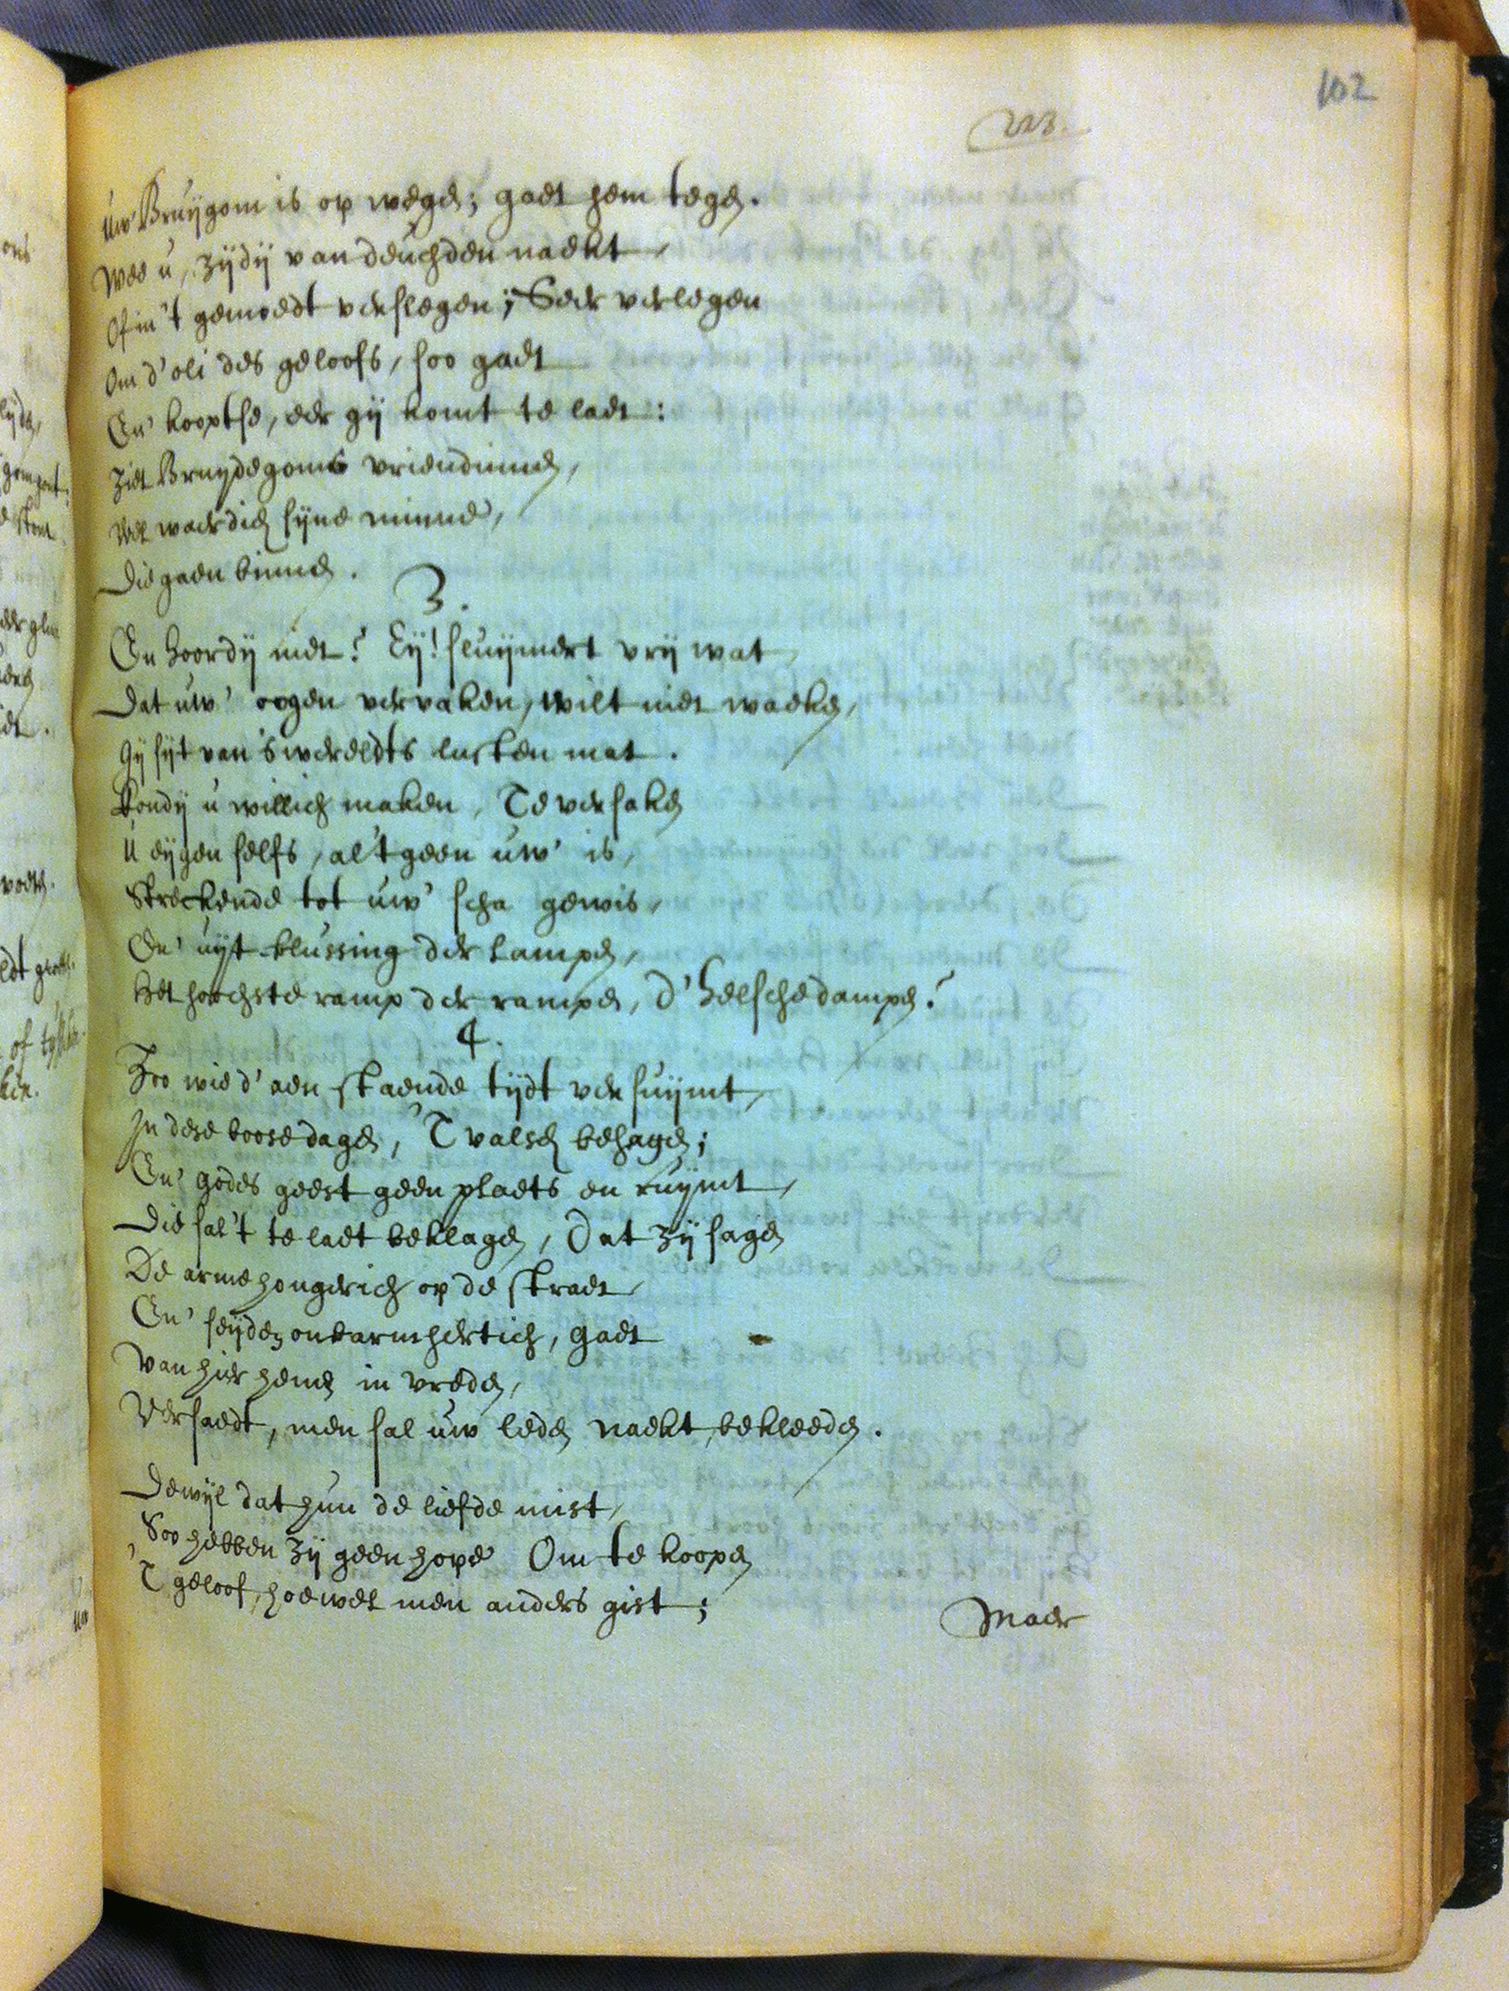 102
223.
Uw' Bruÿgom is op wegen; gaet hem tegen.
Wee u, zÿdÿ van deuchden naekt,
Of in 't gemoedt verslegen; Seer verlegen
Om d'oli des geloofs, soo gaet
En' kooptse, eer gÿ komt te laet:
Ziet Bruÿdegoms vriendinnen,
Wel waerdich sÿne minne,
Die gaen binnen.
3.
En hoordÿ niet? Eÿ! sluÿmert vrÿ wat,
Dat uw' oogen vervaken, wilt niet waeken,
Gÿ sÿt van 's wereldts lusten mat.
Kondÿ u willich maken, Te versaken
U eÿgen selfs, al 't geen uw' is,
Streckende tot uw' scha gewis,
En' uÿt-blussing der lampen,
Het hoochste ramp der rampen, d'helsche dampen?
4.
Zoo wie d'aen staende tÿdt versuÿmt,
In dese boose dagen, 'T valsch behagen;
En' Godes geest geen plaets en ruÿmt,
Die sal 't te laet beklagen, Dat zÿ sagen
De arme hongerich op de straet,
En' seÿden onbarmhertich, gaet
Van hier henen in vreden,
Versaedt, men sal uw leden naekt, bekleeden.
Dewÿl dat hun de liefde mist,
Soo hebben zÿ geen hope Om te koopen
'T geloof, hoewel men anders gist;
Maer